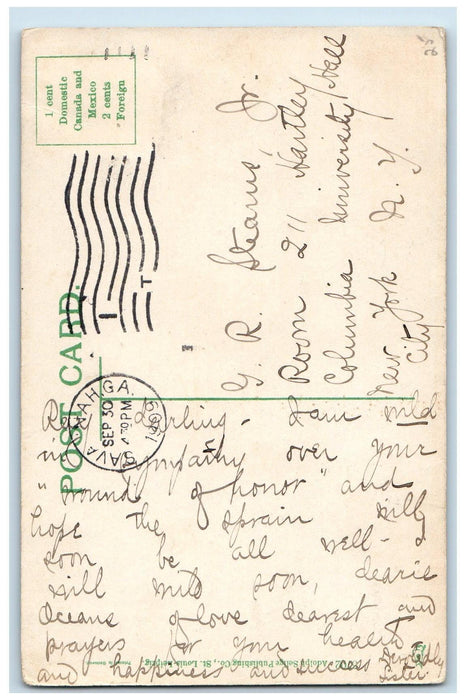 POST CARD.
1 cent
Domestic
Canada and
Mexico
2 cents
Foreign
SAVANNAH GA.
SEP 30
30 PM
1909
G. R. Stearns, Jr.
Room 211 Hartley Hall
Columbia University
New York N. Y.
City
Darling - I am wild
in sympathy over your
"wound of honor" and
hope the sprain will
soon be all well - I
will write soon, dearie
Oceans of love dearest and
prayers for your health
and happiness and success
Sister
Adolph Selige Publishing Co., St. Louis-Leipzig